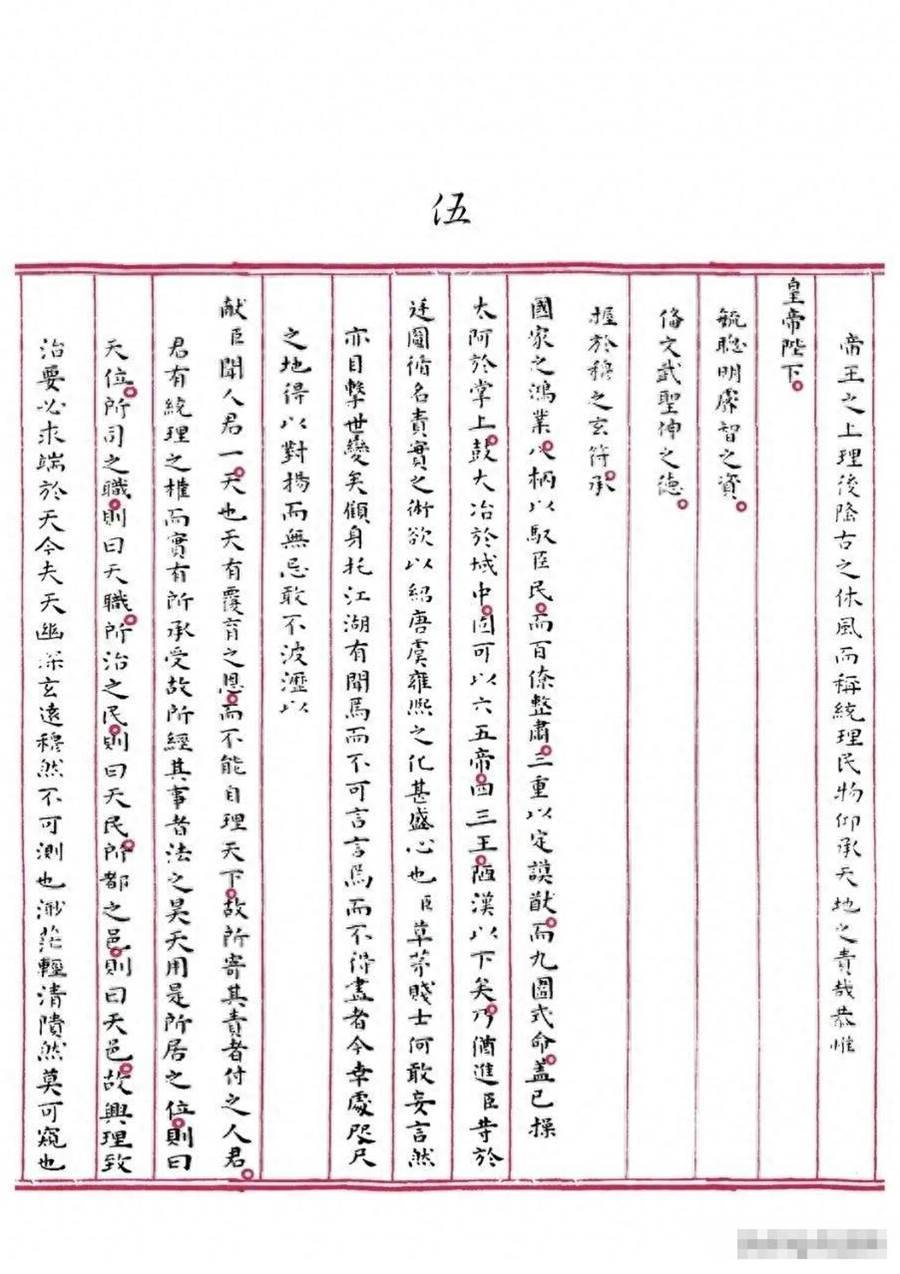 伍
帝王之上理後隆古之休風而稱統理民物仰承天地之責哉恭惟
皇帝陛下
毓聰明睿智之資
俻文武聖伸之德
握於穆之玄符承
國家之鴻業八柄以馭臣民而百僚整肅三重以定謨猷而九圍式命蓋已操
太阿於掌上鼓大冶於域中固可以六五帝四三王陋漢以下矣乃猶進臣等於
廷圖循名責實之術欲以紹唐虞雍熙之化甚盛心也臣草茅賤士何敢妄言然
亦目擊世變矣顧身托江湖有聞焉而不可言言焉而不得盡者今幸處咫尺
之地得以對揚而無忌敢不披瀝以
献臣聞人君一天也天有覆育之恩而不能自理天下故所寄其責者付之人君
君有統理之權而實有所承受故所經其事者法之昊天用是所居之位則曰
天位所司之職則曰天職所治之民則曰天民所都之邑則曰天邑故興理致
治要必求端於天今夫天幽深玄遠穆然不可測也渺茫輕清隤然莫可窺也